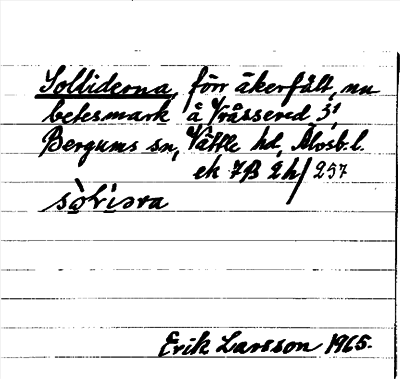 Solliderna, förr åkerfält, nu
betesmark å Vråssered 3¹,
Bergums sn, Vättle hd, Älvsb. l.
ek 7B 2h/257
Erik Larsson 1965.